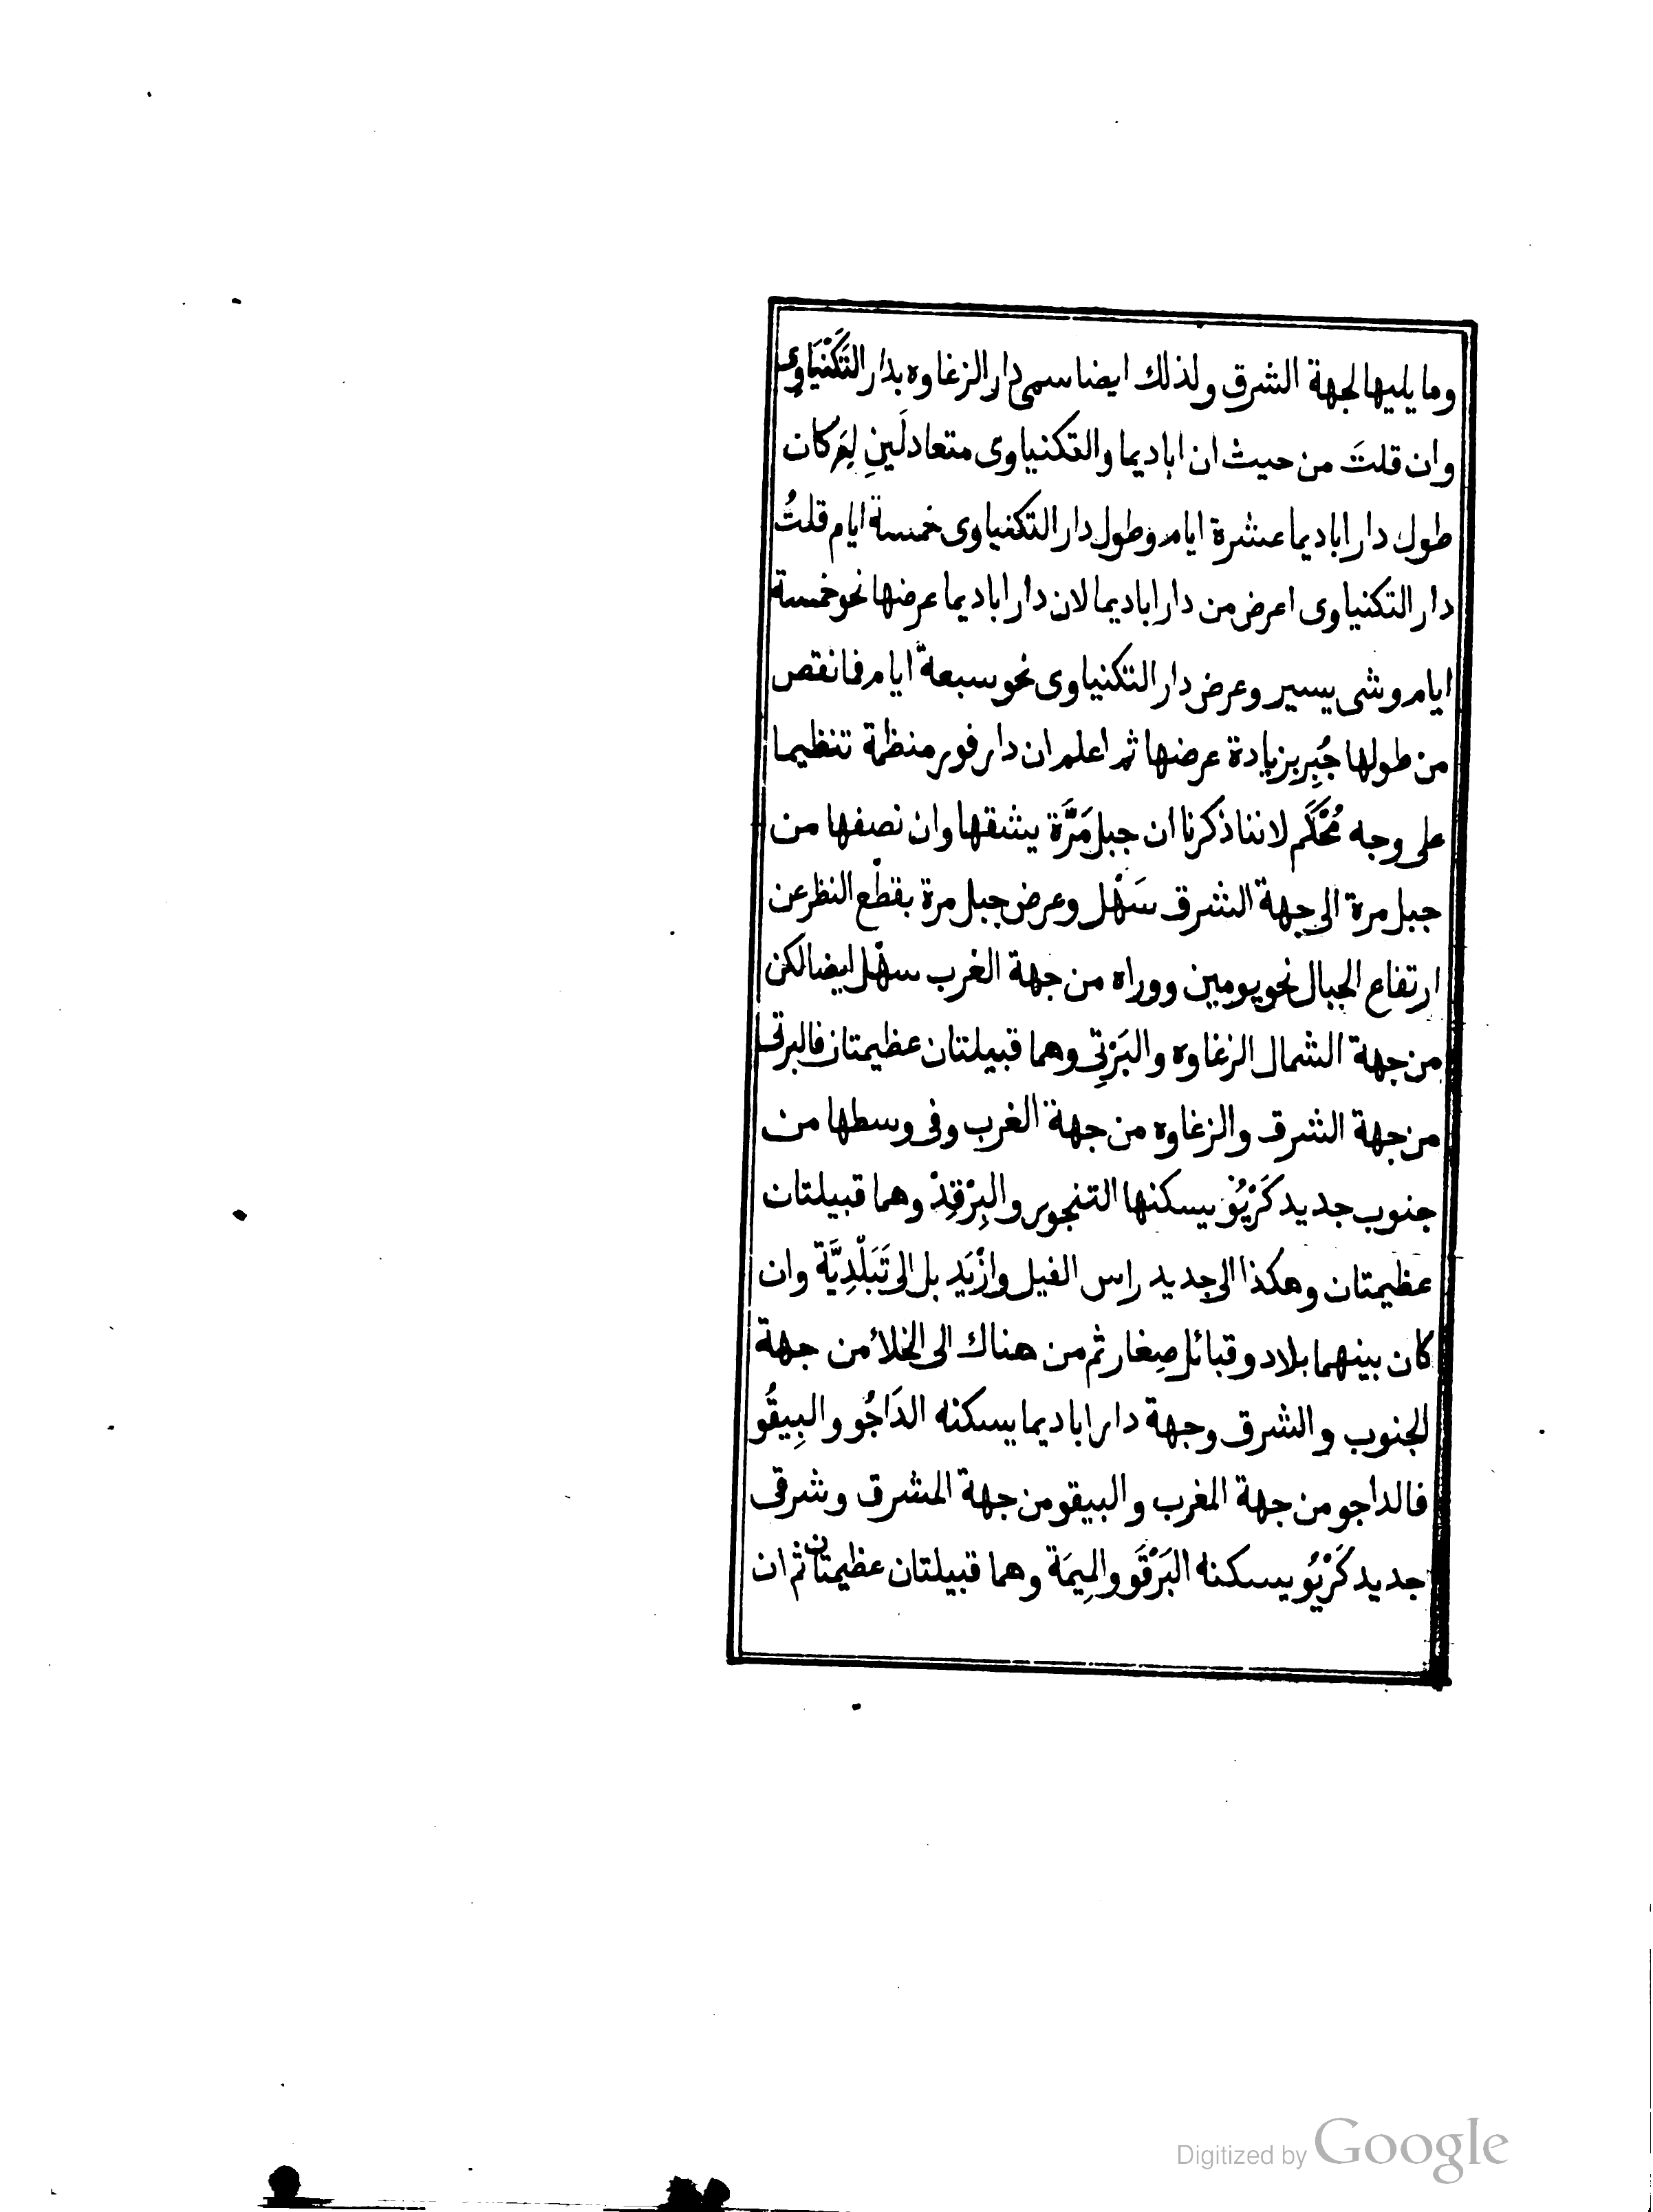 وما يليها لجهة الشرق ولذلك ايضا سمى دار الزغاوه بدار التَكَنْيَاوى
وان قلتَ من حيث ان اباديما والتكنياوى متعادلَينِ لِمَ كان
طول دار اباديما عشرة ايام وطول دار التكنياوى خمسة ايام قلتُ
دار التكنياوى اعرض من دار اباديما لان دار اباديما عرضها نحو خمسة
ايام وشى يسير وعرض دار التكنياوى نحو سبعة ايام فما نقص
من طولها جُبِر بزيادة عرضها ثم اعلم ان دار فور منظمة تنظيما
على وجه مُحْكَم لاننا ذكرنا ان جبل مَرَّة يشقها وان نصفها من
جبل مرة الى جهة الشرق سَهْل وعرض جبل مرة بقطْع النظر عن
ارتفاع الجبال نحو يومين ووراه من جهة الغرب سهْل ايضا لكن
من جهة الشمال الزغاوه والبَرْتِى وهما قبيلتان عظيمتان فالبرتى
من جهة الشرق والزغاوه من جهة الغرب وفى وسطها من
جنوب جديد كَرْيُوْ يسكنها التنجور والبِرْقِدْ وهما قبيلتان
عظيمتان وهكذا الى جديد راس الفيل وازْيَد بل الى تَبَلْدِيَّة وان
كان بينهما بلاد وقبائل صِغار ثم من هناك الى الخلائ من جهة
الجنوب والشرق وجهة دار اباديما يسكنه الدَاجُو والبِيقُو
فالداجو من جهة المغرب والبيقو من جهة المشرق وشرقى
جديد كَرْيُو يسكنه البَرْقَو والمِيمَة وهما قبيلتان عظيمتان ثم ان
Digitized by Google